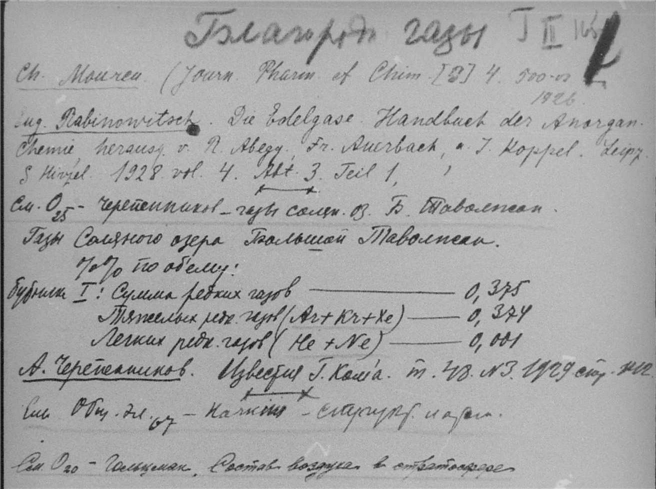 Благородн газы I II
Ch. Moureu. (Journ. Pharm. et Chim. [8] 4.
1926.
Eug. Rabinowitsch. Die Edelgase. Handbuch der Anorgan.
Chemie herausg. v. R. Abegg. Fr. Auerbach, u. I. Koppel. Leipz.
S Hirzel. 1928 vol. 4. Abt. 3. Teil 1,
См. О25 - Черепенников - газы солян. оз. Б. Таволжан.
Газы Соляного озера Большой Таволжан.
%% по обему:
Бутылка I: Сумма редких газов — 0,375
Тяжелых редк. газов (Ar+Kr+Xe) — 0,374
Легких редк. газов (He+Ne) — 0,001
А. Черепенников. Известия Г. Ком'а. т. 48. N3. 1929 стр.
Общ. Эл. 67 - Harkins -
См О20 - Гольцман, Состав воздуха в стратосфере